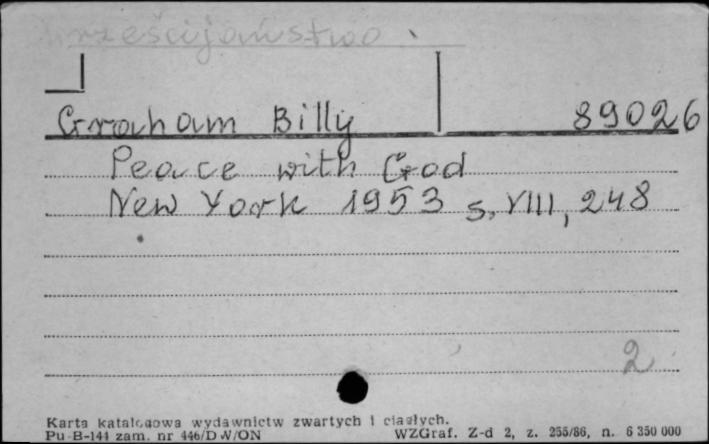 chrześcijaństwo
Graham Billy 89026
Peace with God
New York 1953 s, VIII, 248
2
Karta katalogowa wydawnictw zwartych i ciągłych.
Pu-B-144 zam. nr 446/DW/ON WZGraf. Z-d 2, z. 255/86, n. 6 350 000